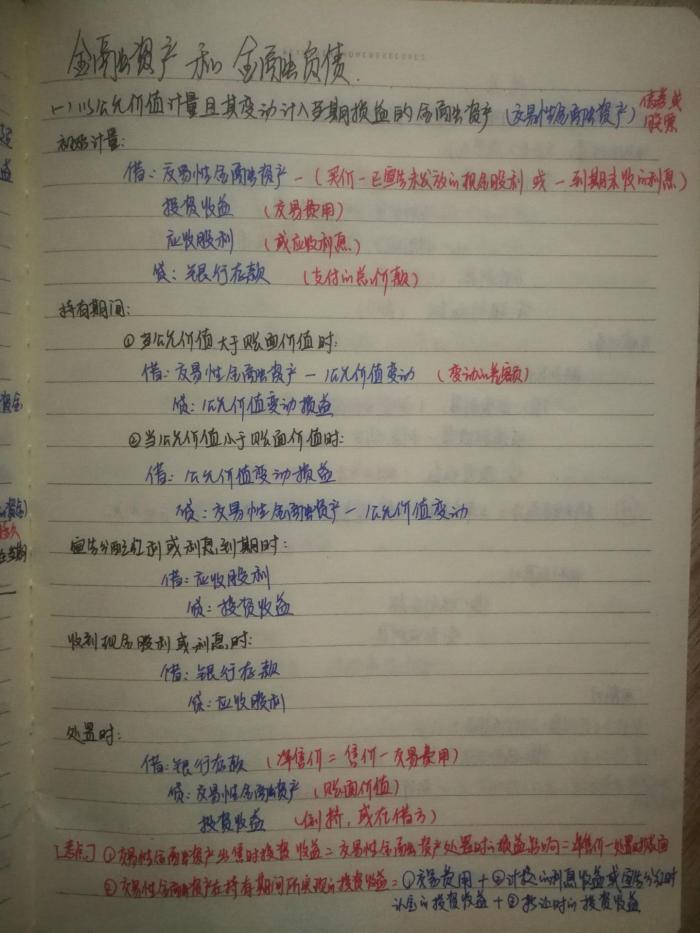 金融资产和金融负债.
(一)以公允价值计量且其变动计入当期损益的金融资产(交易性金融资产)债券或股票
初始计量:
借:交易性金融资产-(买价-已宣告未发放的现金股利或-到期未收的利息
投资收益 (交易费用)
应收股利 (或应收利息)
贷:银行存款 (支付的总价款)
持有期间:
①当公允价值大于账面价值时:
借:交易性金融资产-公允价值变动 (变动的差额)
贷:公允价值变动损益
②当公允价值小于账面价值时:
借:公允价值变动损益
贷:交易性金融资产-公允价值变动
宣告分配红利或利息到期时:
借:应收股利
贷:投资收益
收到现金股利或利息时:
借:银行存款
贷:应收股利
处置时:
借:银行存款 (净售价=售价-交易费用)
贷:交易性金融资产 (账面价值)
投资收益 (倒挤,或在借方)
[考点]①交易性金融资产出售时投资收益=交易性金融资产处置时的损益影响=净售价-处置时账面
②交易性金融资产在持有期间所实现的投资收益=①交易费用+②计提的利息收益或宣告分红时
认定的投资收益+③转让时的投资收益